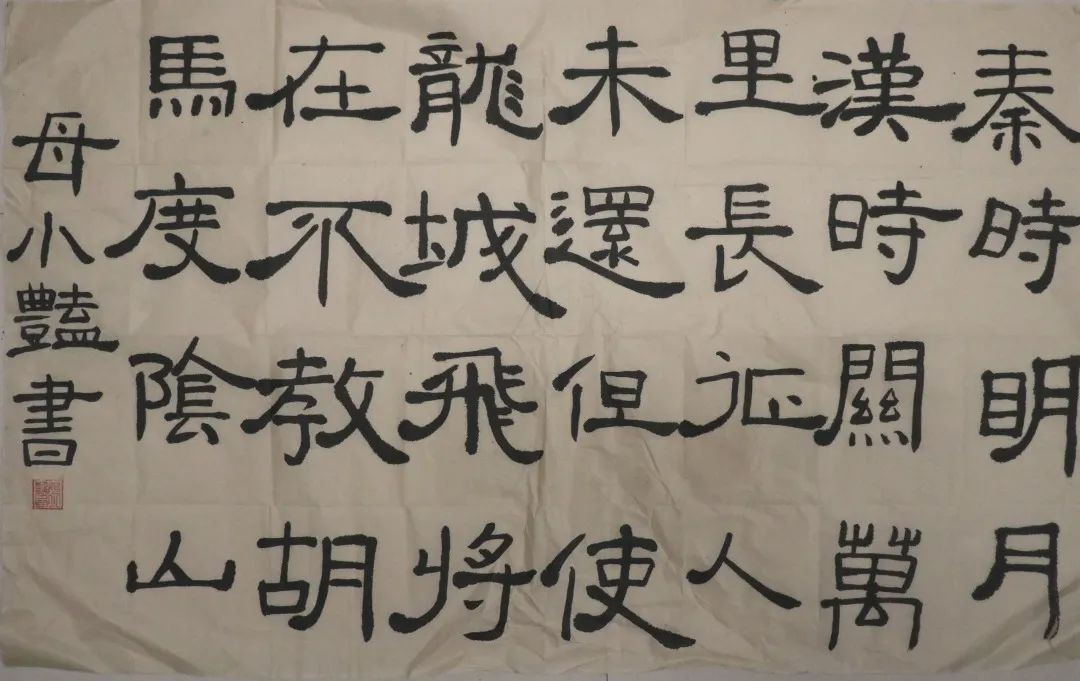 秦時明月
漢時關萬
里長征人
未還但使
龍城飛將
在不教胡
馬度陰山
母小豔書